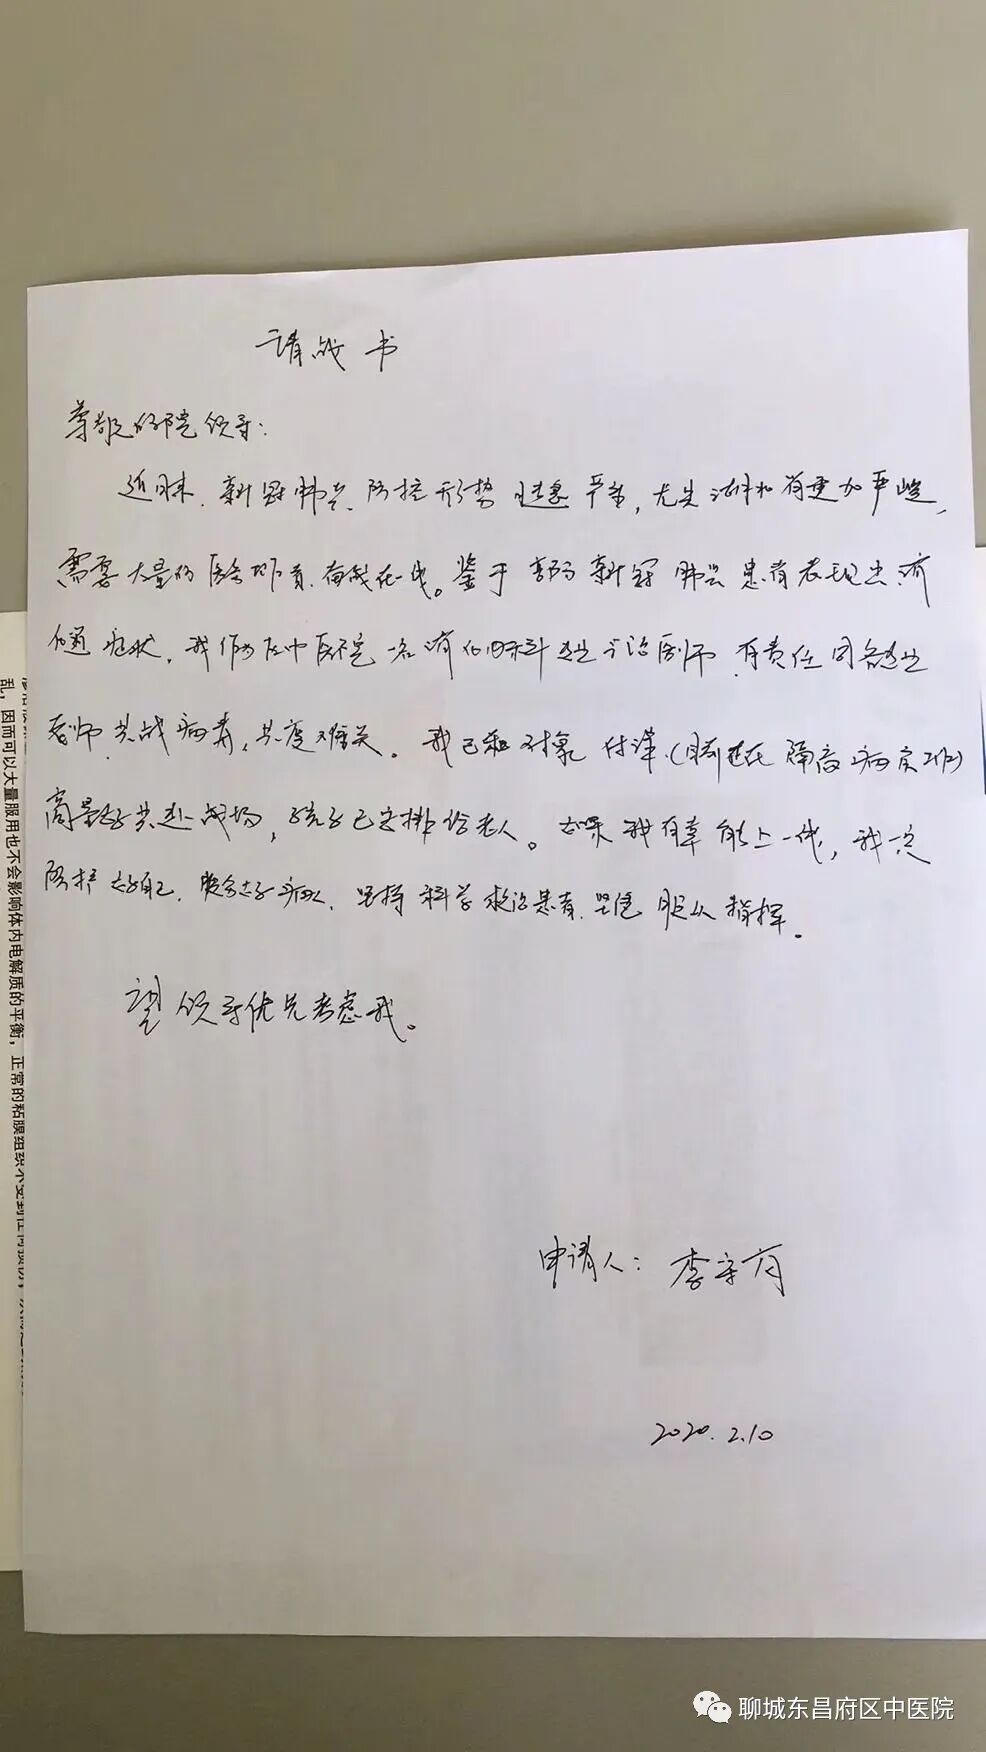 请战书
尊敬的院领导:
近日来,新冠肺炎防控形势日益严重,尤其湖北和省更加严峻,
需要大量的医务人员奋战在一线。鉴于部分新冠肺炎患者表现出消
化道症状,我作为区中医院一名消化内科主治医师,有责任同各专业
老师共战病毒,共度难关。我已和对象付洋(目前还在隔离病房工作)
商量好共赴战场,孩子已安排给老人。如果我有幸能上一线,我一定
防护好自己,服务好病人,坚持科学救治患者,坚定服从指挥。
望领导优先考虑我。
申请人:李守
2020.2.10
乱,因而可以大量服用也不会影响体内电解质的平衡,正常的粘膜组织不受到任何损伤,
聊城东昌府区中医院